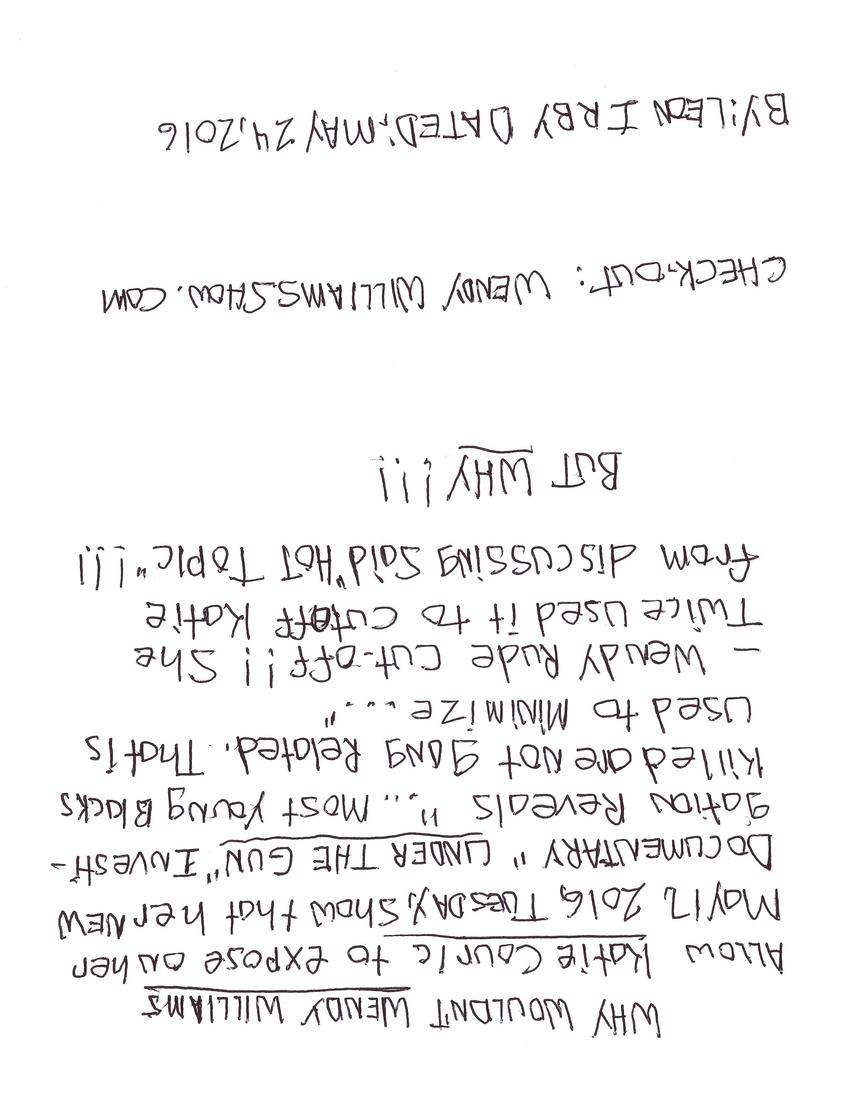 WHY WOULDN'T WENDY WILLIAMS
ALLOW Katie Couric to expose on her
May 17, 2016, TUESDAY, Show that her NEW
DOCUMENTARY "UNDER THE GUN" Investi-
gation Reveals "... Most Young Blacks
killed are Not gang Related. That is
used to MINIMIZE ..."
- Wendy Rude Cut-off!! She
Twice used it to cutoff Katie
from discussing Said "HOT TOPIC"!!!
BUT WHY!!!
CHECK-OUT: WENDY WILLIAMS.SHOW.COM
BY: LEON IRBY DATED; MAY 24, 2016